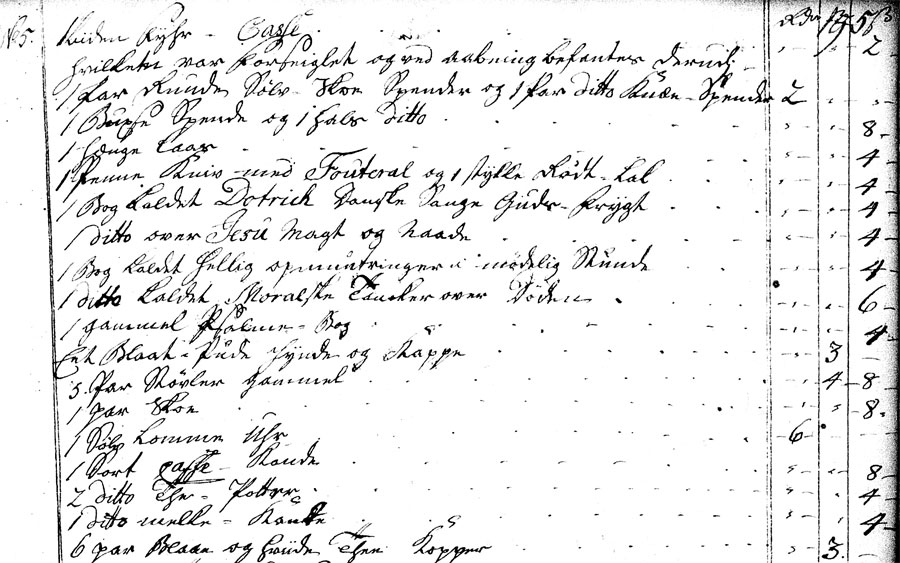 No 5. 1 liden Fyhr - Casse . . . 2
hvilken var forseiglet og ved aabning befantes derudj
1 Par Runde Sølv Skoe Spender og 1 Par ditto Knæe-Spender 2 " "
1 Buxse Spende og 1 Hals ditto . . . " " 8
1 Hænge Laas . . . " " 4
1 Penne Kniv med Fouteral og 1 stykke Rødt-Lak . . . " " 4
1 Bog kaldet Dotrick Danske Sange Guds-Frygt . . . " " 4
1 ditto over Jesu Magt og Naade . . . " " 4
1 Bog kaldet Hellig opmuntringer i mødelig Stunde " " 4
1 ditto kaldet Moralske Tancker over Døden . " " 6
1 gammel Psalme-Bog . . . " " 4
Eet Blaat-Pude Hynde og Kappe . . . " 3 "
3. Par Støvler gammel . . . " 4 8
1 par Skoe . . . " " 8
1 Sølv Lomme Uhr . . . 6 " "
1 Sort Caffe-Kande . . . " " 8
2 ditto The-Potter . . . " " 4
1 ditto melke-Kande . . . " " 4
6 par Blaae og hvide Thee Kopper . . . " 3 "